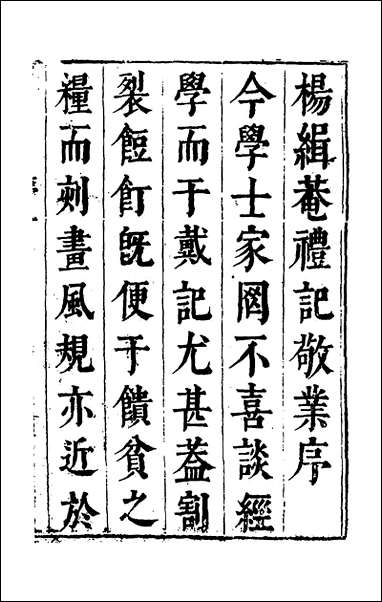 楊緝菴禮記敬業序
今學士家罔不喜談經
學而于戴記尤甚葢割
裂餖飣旣便于饋貧之
糧而刻畫風規亦近於